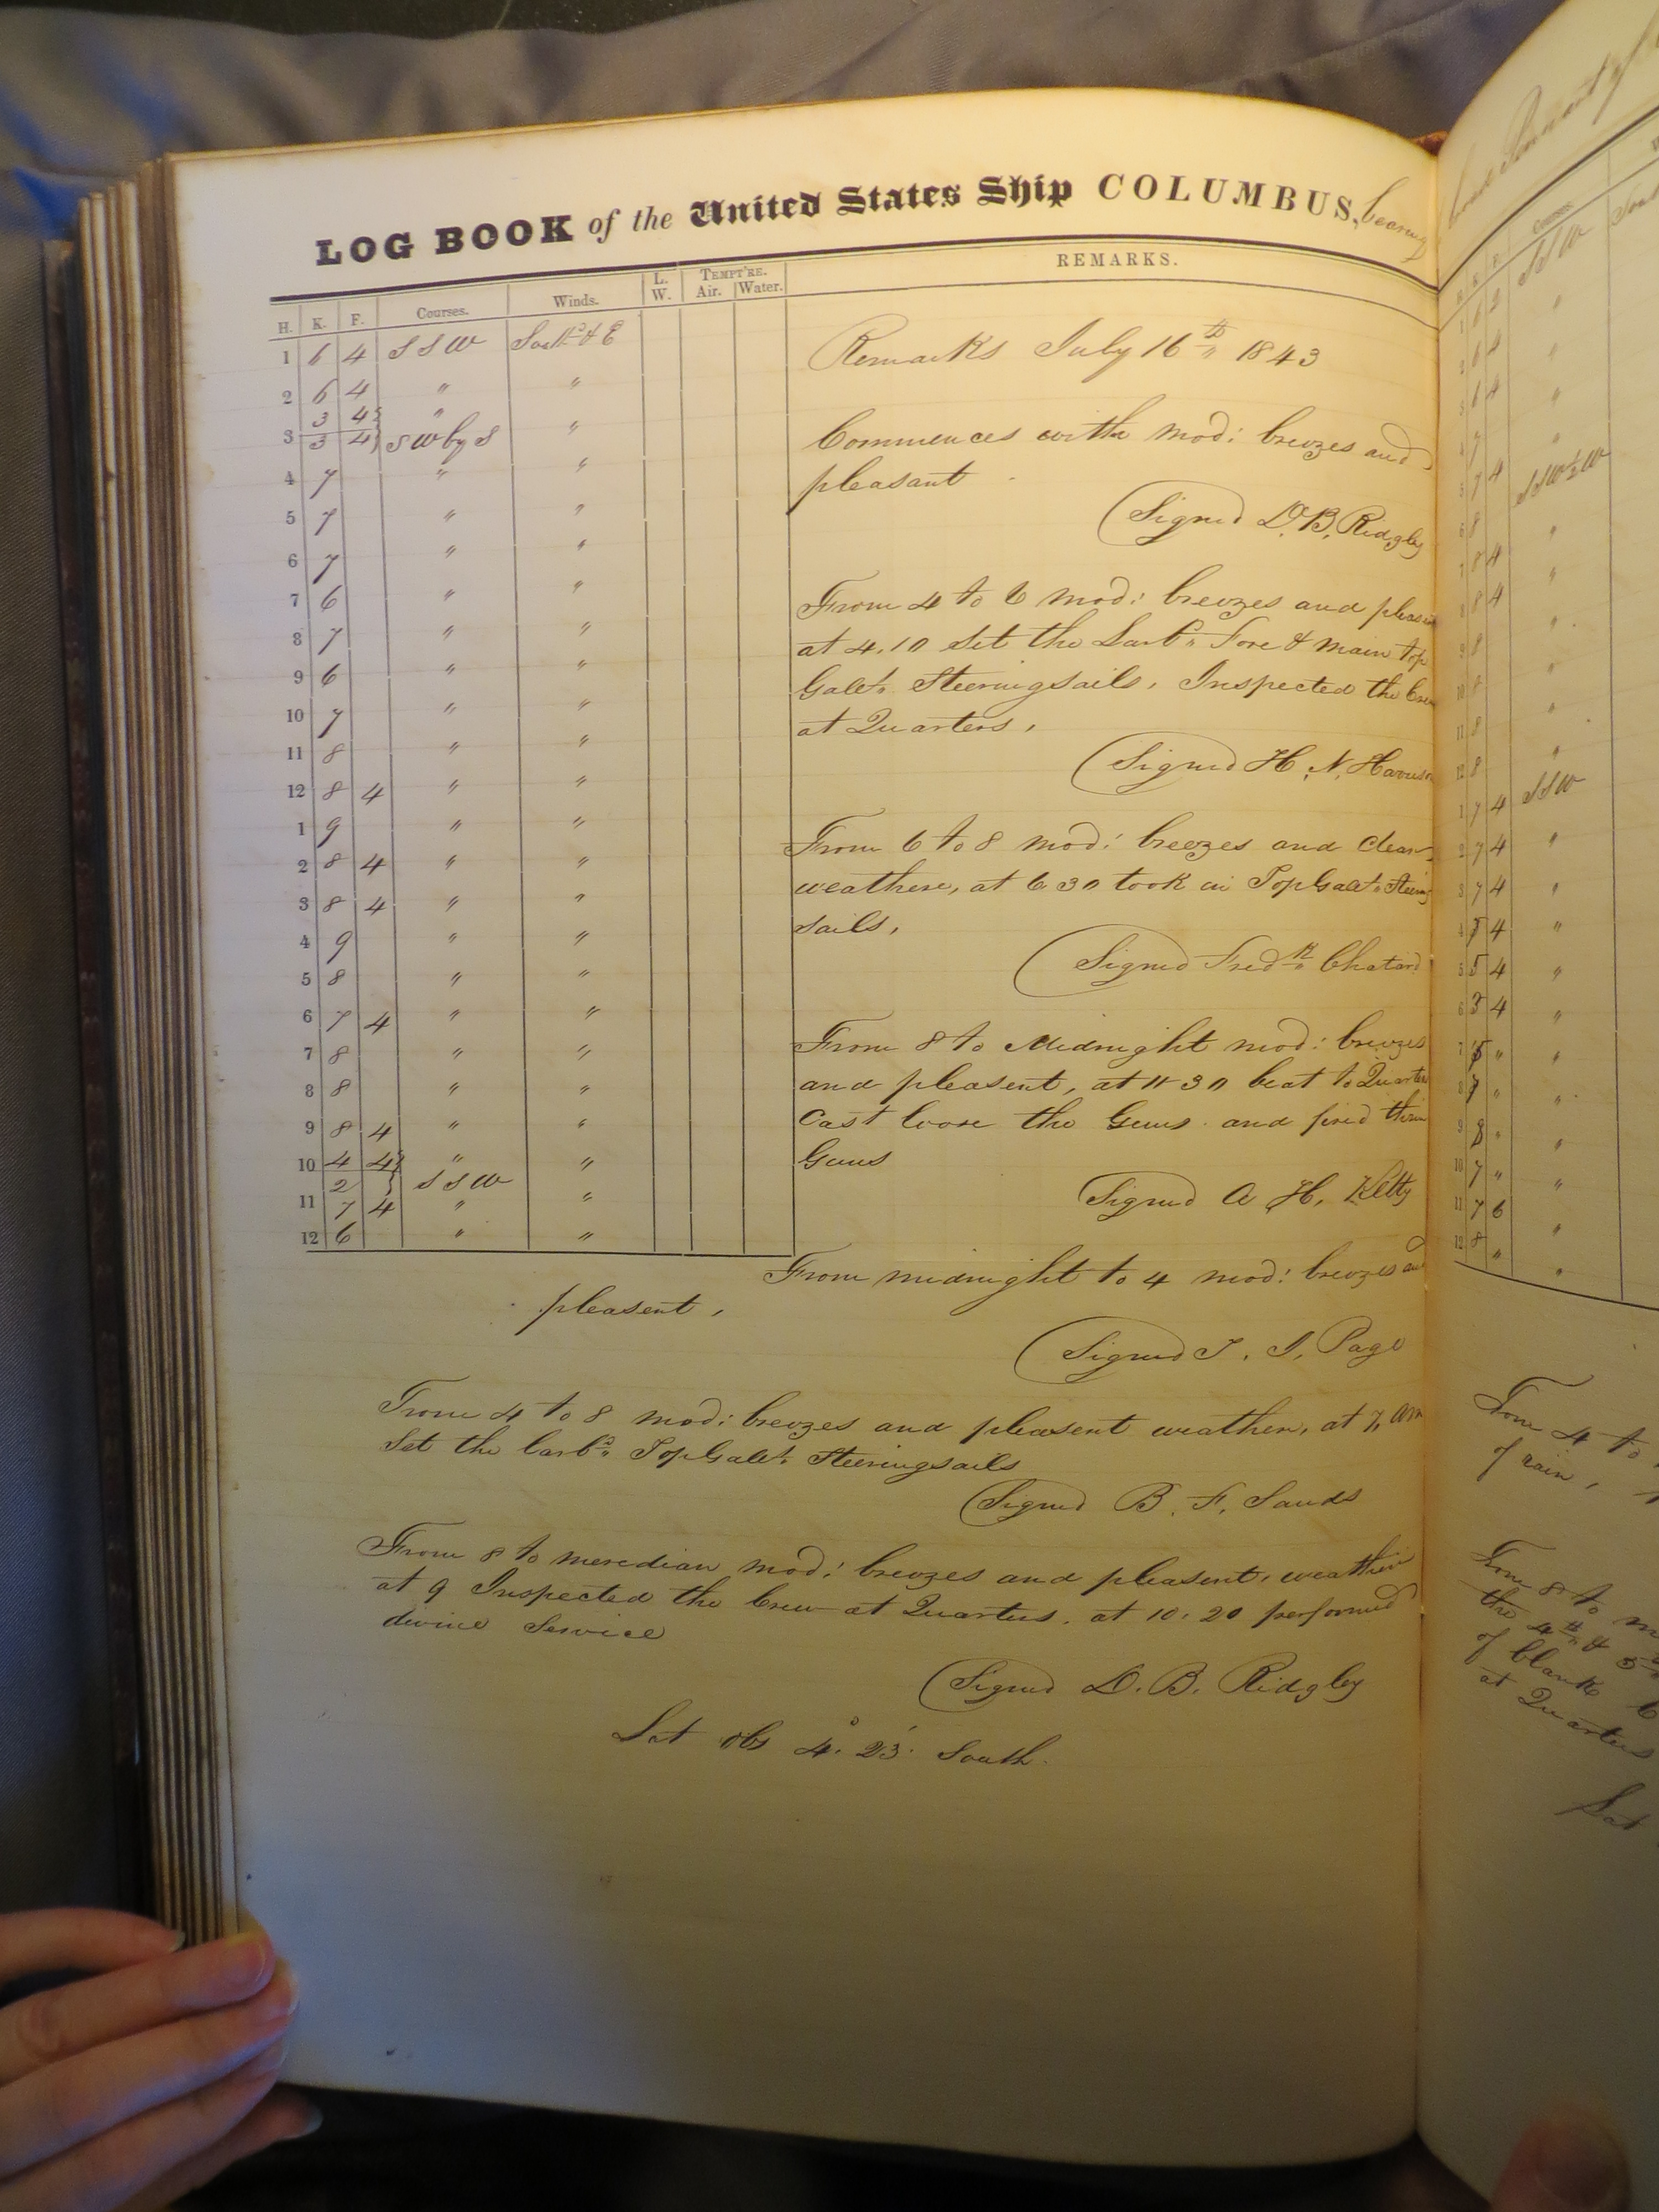 LOG BOOK of the United States Ship COLUMBUS, bearing
H. K. F. Courses. Winds. L. W. TEMPT'RE. Air. Water. REMARKS.
1 6 4 SSW South^d & E
2 6 4 " "
3 4 "
3 3 4 SW by S "
4 7 " "
5 7 " "
6 7 " "
7 6 " "
8 7 " "
9 6 " "
10 7 " "
11 8 " "
12 8 4 " "
1 9 " "
2 8 4 " "
3 8 4 " "
4 9 " "
5 8 " "
6 7 4 " "
7 8 " "
8 8 " "
9 8 4 " "
10 4 4 " "
2 SSW
11 7 4 " "
12 6 " "
Remarks July 16th 1843
Commences with mod: breezes and
pleasant
Signed D. B. Ridgley
From 4 to 6 mod: breezes and
at 4.10 Set the Larb^d Fore & main top
Gal^t Steeringsails, Inspected the Crew
at Quarters,
Signed H. N. Harrison
From 6 to 8 mod: breezes and Clear
weather, at 6 30 took in TopGal^t Steering
sails,
Signed Fred^k Chatard
From 8 to Midnight mod: breezes
and pleasent, at 11 30 beat to Quarters
Cast loose the Guns and fired
Guns
Signed A H, Kelty
From midnight to 4 mod: breezes and
pleasent,
Signed T. J. Page
From 4 to 8 mod: breezes and pleasent weather, at 7, AM
Set the larb^d TopGal^t Steeringsails
Signed B. F. Sands
From 8 to meredian mod: breezes and pleasent, weather
at 9 Inspected the Crew at Quarters. at 10.20 performed
divine Service
Signed D. B. Ridgley
Lat obs 4° 23' South.
Courses
SSW
SSW½W
SSW
From 4 to
of rain,
From 8 to
the 4th & 5
of blank
at Quarters
Lat